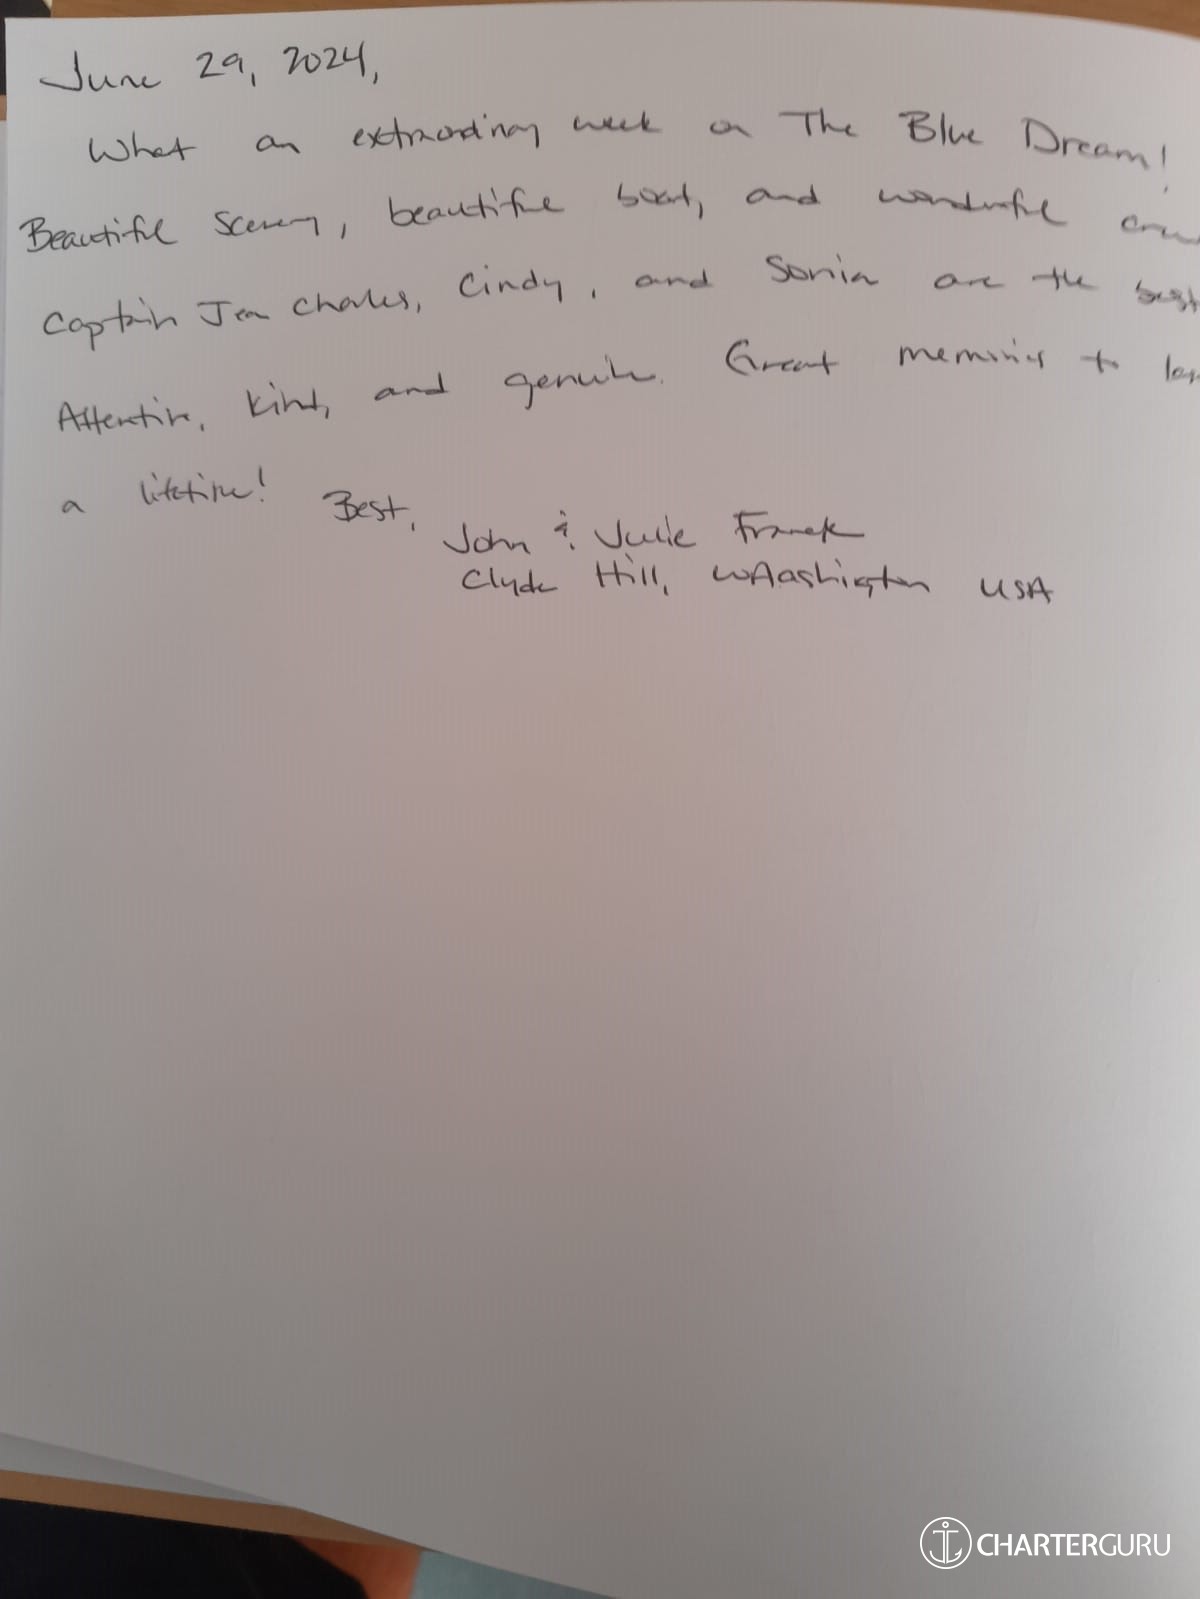 June 29, 2024,
What an extraordinary week on The Blue Dream!
Beautiful scenery, beautiful boat, and wonderful crew
Captain Jean Charles, Cindy, and Sonia are the best
Attentive, kind, and genuine. Great memories to last
a lifetime! Best,
John & Julie Franck
Clyde Hill, WAashington USA
CHARTERGURU